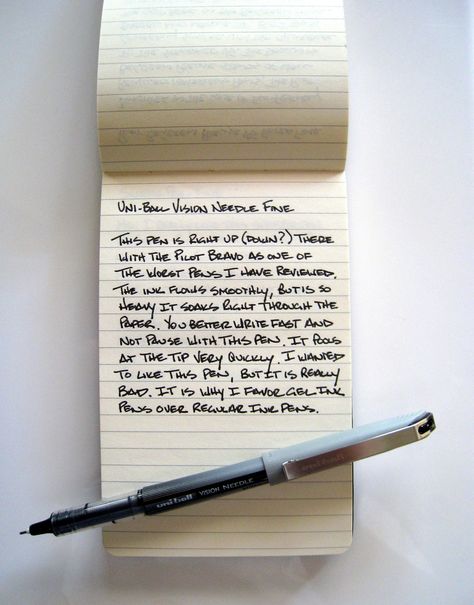 Uni-Ball Vision Needle Fine
This pen is right up (down?) there
with the Pilot Bravo as one of
the worst pens I have reviewed.
The ink flows smoothly, but is so
heavy it soaks right through the
paper. You better write fast and
not pause with this pen. It pools
at the tip very quickly. I wanted
to like this pen, but it is really
bad. It is why I favor gel ink
pens over regular ink pens.
uni-ball
uni-ball VISION NEEDLE